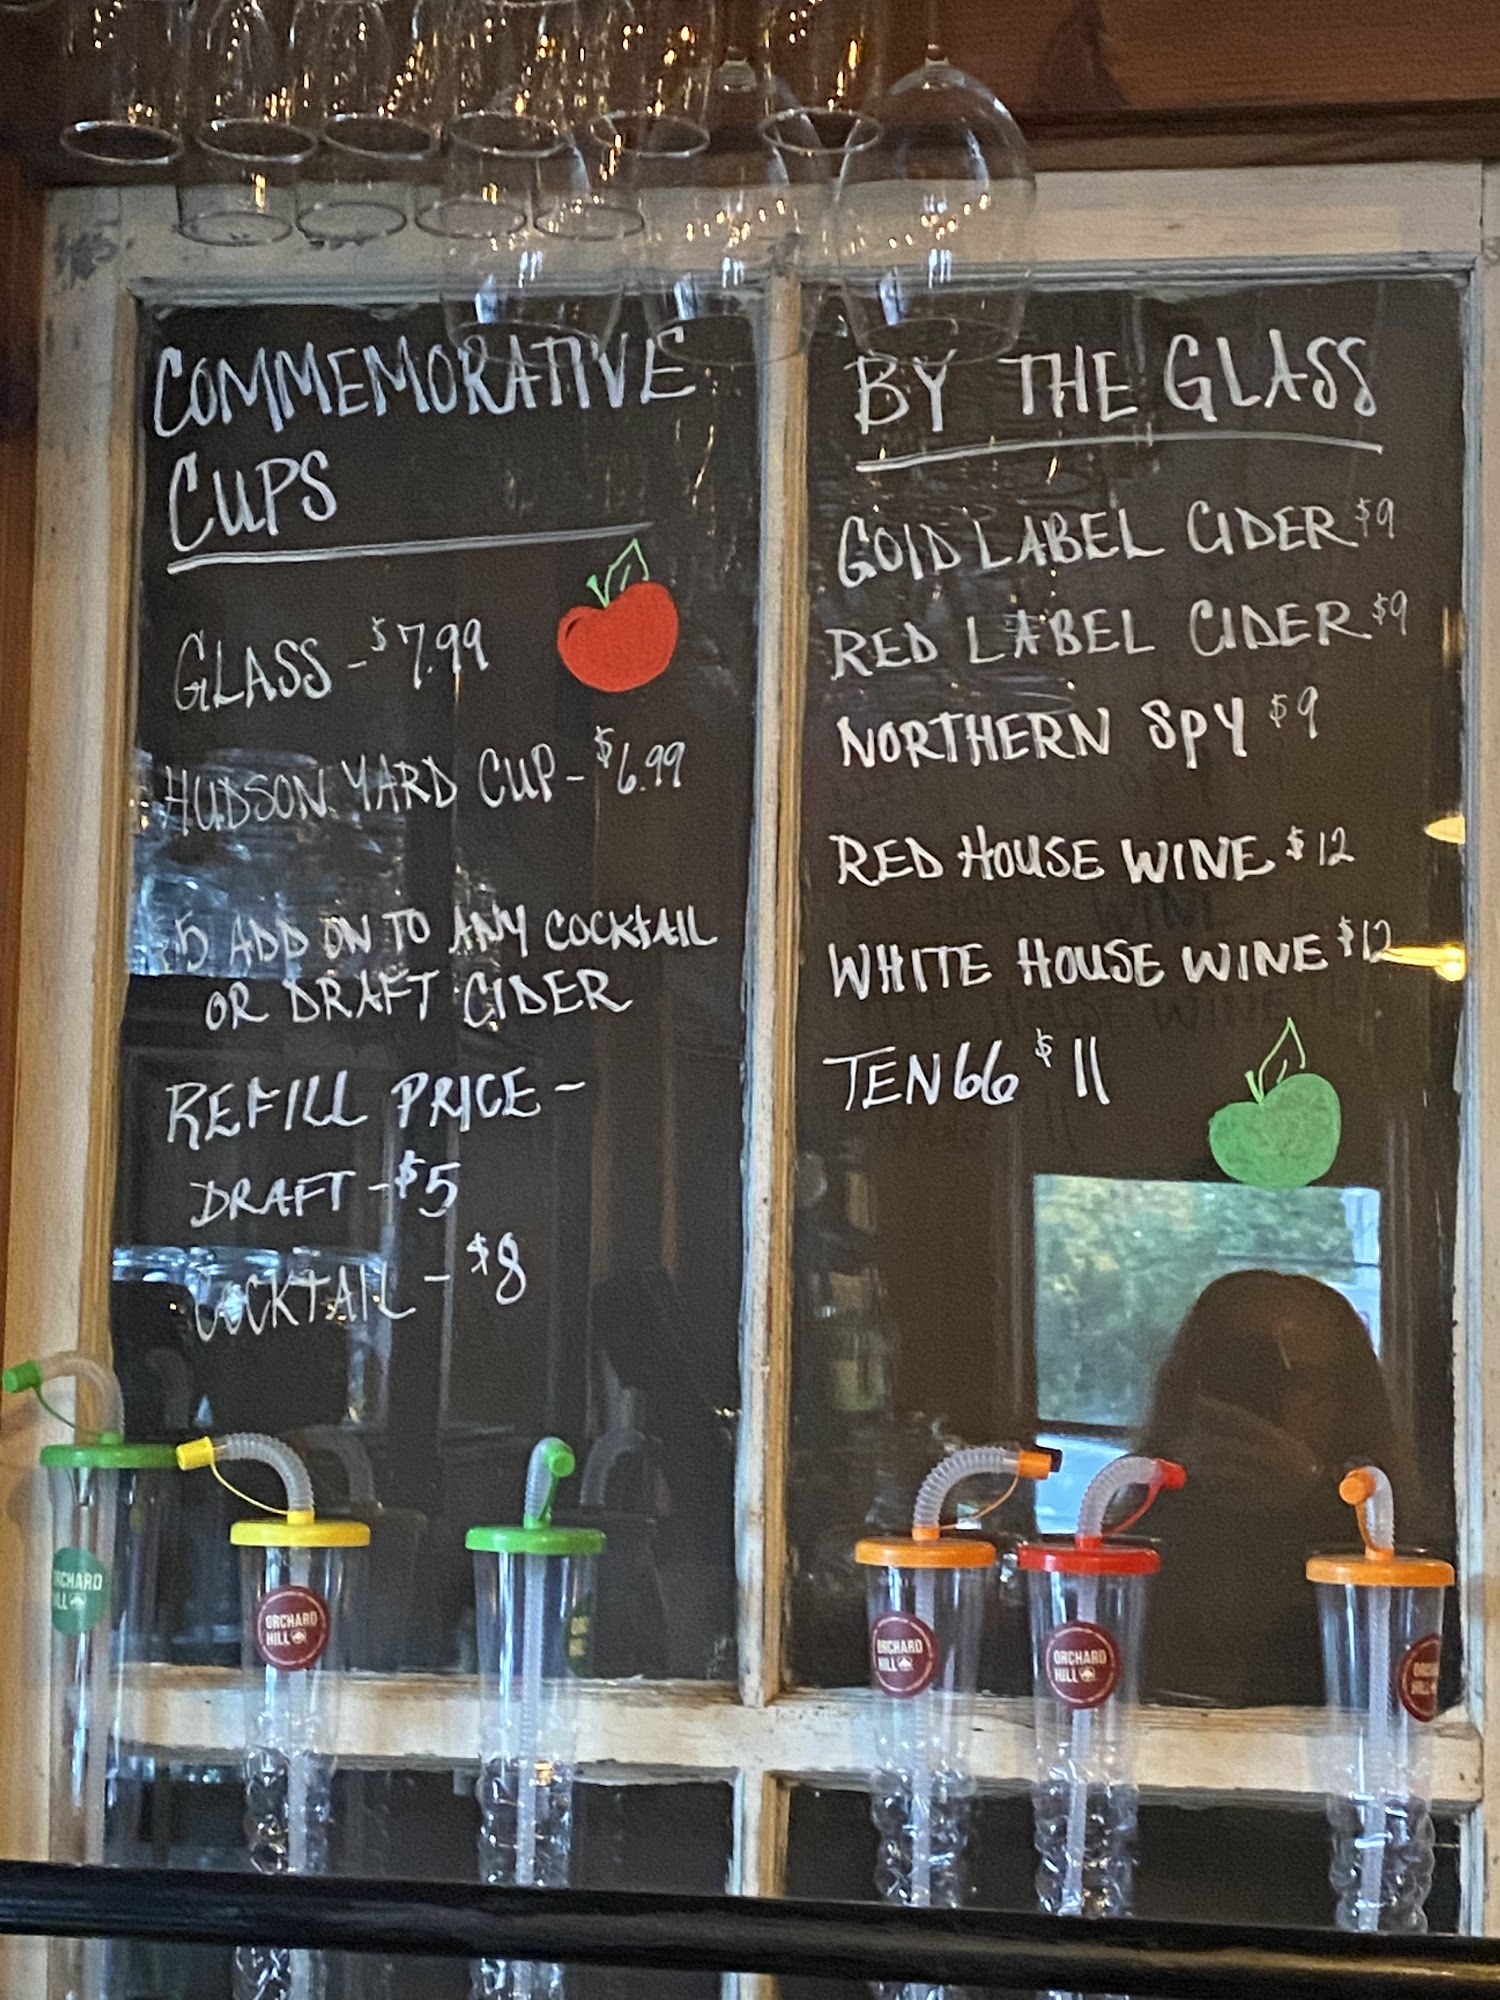 COMMEMORATIVE
CUPS
GLASS - $7.99
HUDSON YARD CUP - $6.99
5 ADD ON TO ANY COCKTAIL
OR DRAFT CIDER
REFILL PRICE -
DRAFT - $5
COCKTAIL - $8
BY THE GLASS
GOLD LABEL CIDER $9
RED LABEL CIDER $9
NORTHERN SPY $9
RED HOUSE WINE $12
WHITE HOUSE WINE $12
TEN66 $11
ORCHARD
HILL
ORCHARD
HILL
ORCHARD
HILL
ORCHARD
HILL